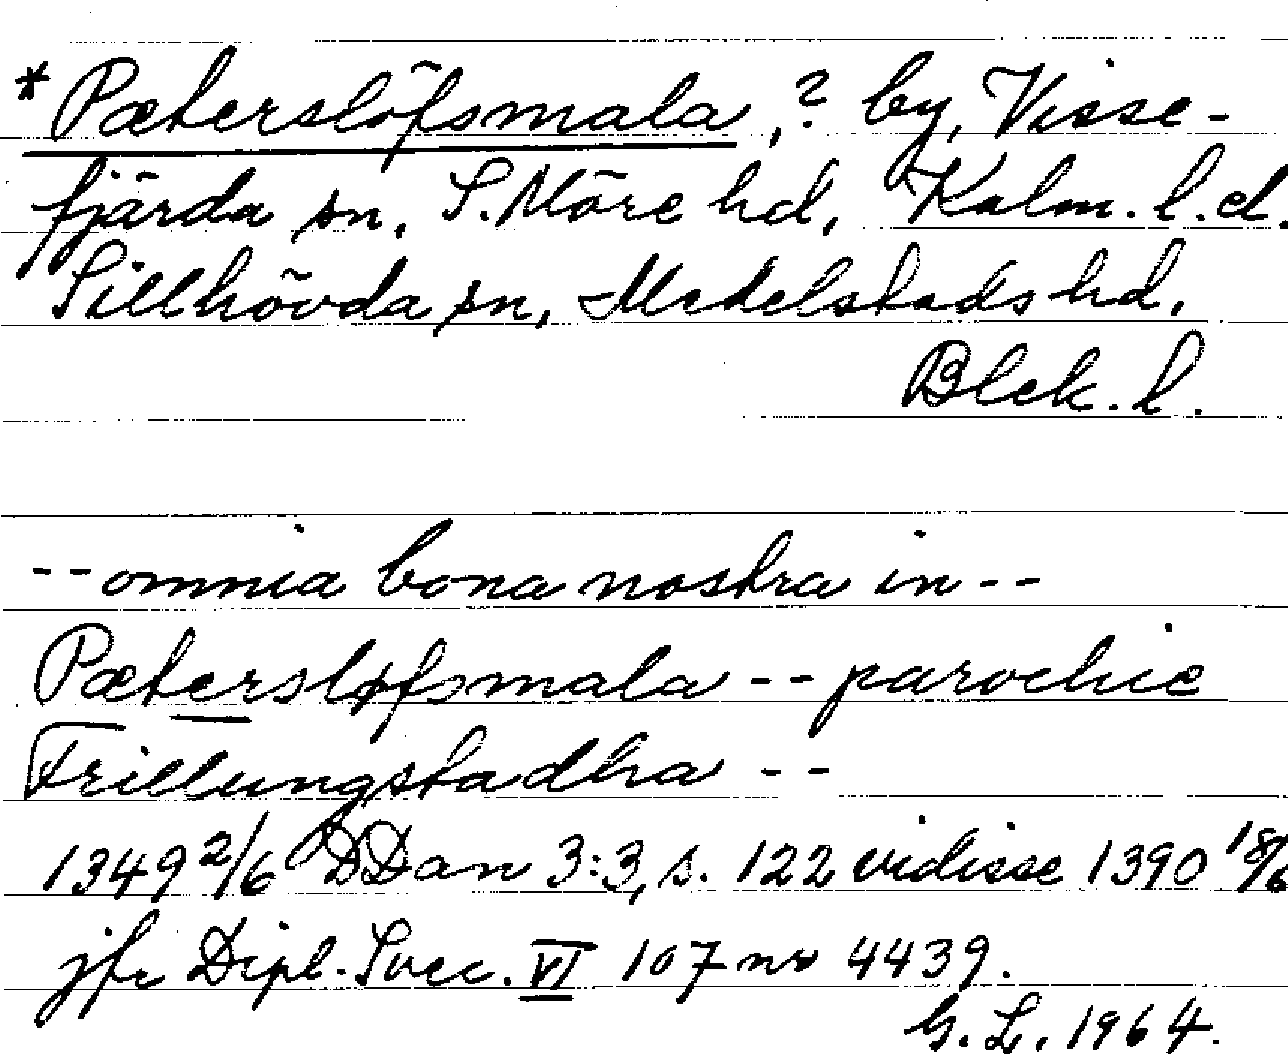 *Pæterslöfsmala, ? by, Visse-
fjärda sn, S. Möre hd, Kalm. l. el.
Sillhövda sn, Medelstads hd,
Blek. l.
-- omnia bona nostra in --
Pætersløfsmala -- parochie
Trillungstadha --
1349 2/6 DDan 3:3, s. 122 vidisse 1390 18/6
jfr Dipl. Svec. VI 107 nr 4439.
G. L. 1964.